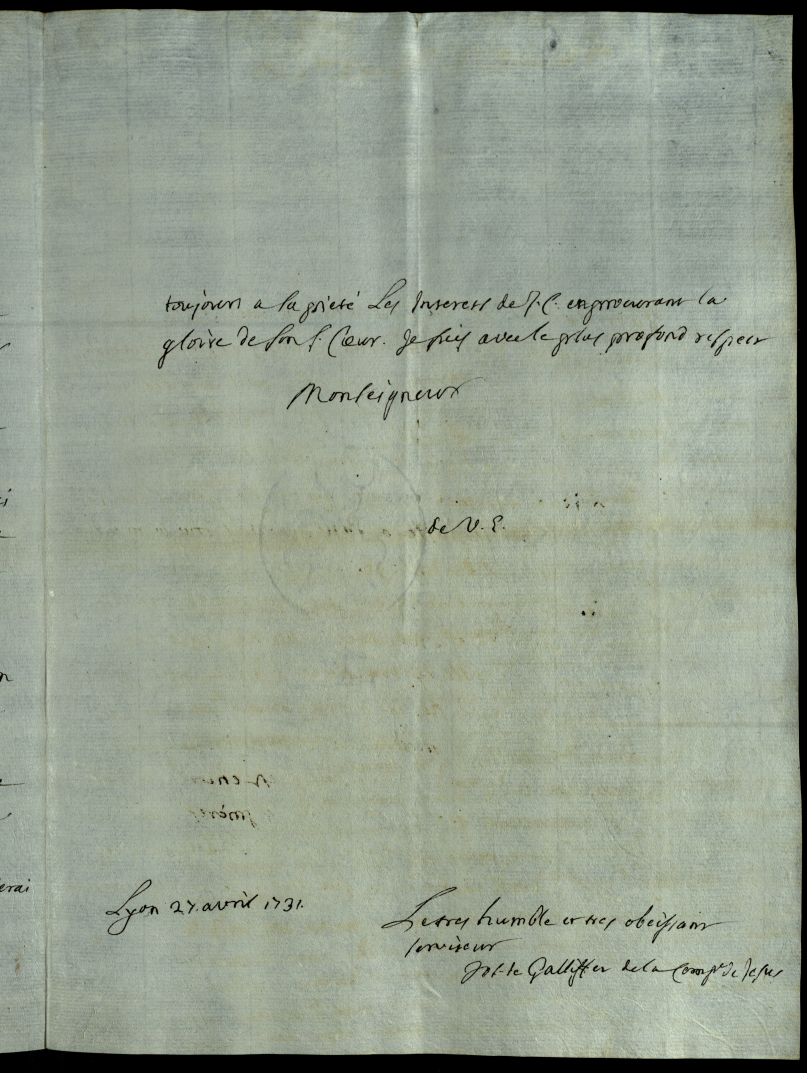 toujours a sa pieté Les Interests de J. C. en procurant la
gloire de son S. Cœur. Je suis avec le plus profond respect
Monseigneur
de V. E.
Lyon 27. avril 1731.
Le tres humble et tres obeissant
serviteur
de Galliffet de la Comp.e de Jesus
erai